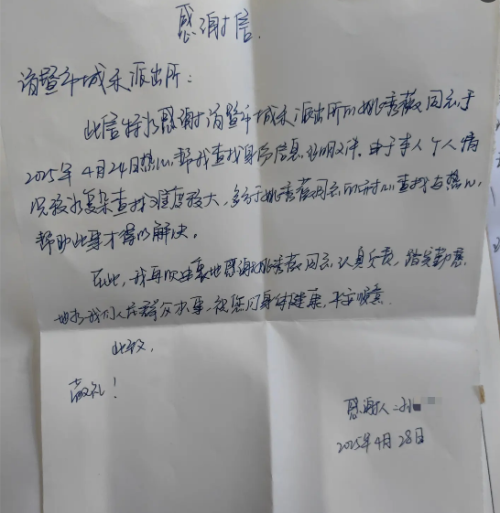 感谢信.
诸暨市城东派出所：
此信特为感谢诸暨市城东派出所的姚秀薇同志于
2025年4月24日热心帮我查找身份信息证明文件。由于本人个人情
况较为复杂查找难度较大，多亏姚秀薇同志的耐心查找与热心
帮助此事才得以解决。
在此，我再次由衷地感谢姚秀薇同志认真负责，踏实勤恳
地为我们人民群众办事，祝您们身体健康，平安顺意.
此致，
敬礼！
感谢人：孙
2025年4月28日